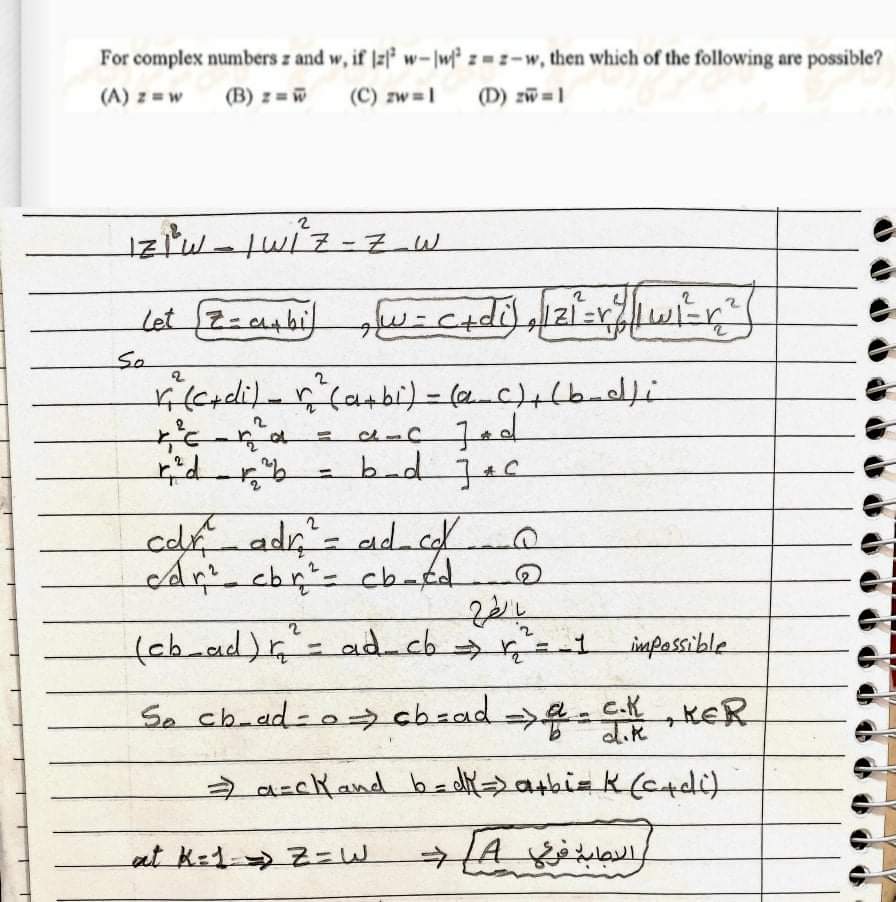 For complex numbers z and w, if |z|² w-|w|² z = z-w, then which of the following are possible?
(A) z = w (B) z = w̅ (C) zw = 1 (D) zw̅ = 1
|z|²w - |w|²z = z - w
Let z = a+bi , w = c+di , |z|² = r₁² , |w|² = r₂²
So
r₁²(c+di) - r₂²(a+bi) = (a-c)+(b-d)i
r₁²c - r₂²a = a-c ] * d
r₁²d - r₂²b = b-d ] * c
cdr₁² - adr₂² = ad-cd ---①
cdr₁² - cbr₂² = cb-cd ---②
بالطرح
(cb-ad)r₂² = ad-cb ⇒ r₂² = -1 impossible
So cb-ad=0 ⇒ cb=ad ⇒ a/b = c.k/d.k , K∈R
⇒ a=ck and b=dk ⇒ a+bi = k(c+di)
at k=1 ⇒ z=w ⇒ A الاجابة فرع